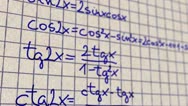 sin2x=2sinxcosx
cos2x=cos²x-sin²x=2cos²x-1=1-
tg2x= 2tgx
1-tg²x
ctg2x= ctgx-tgx